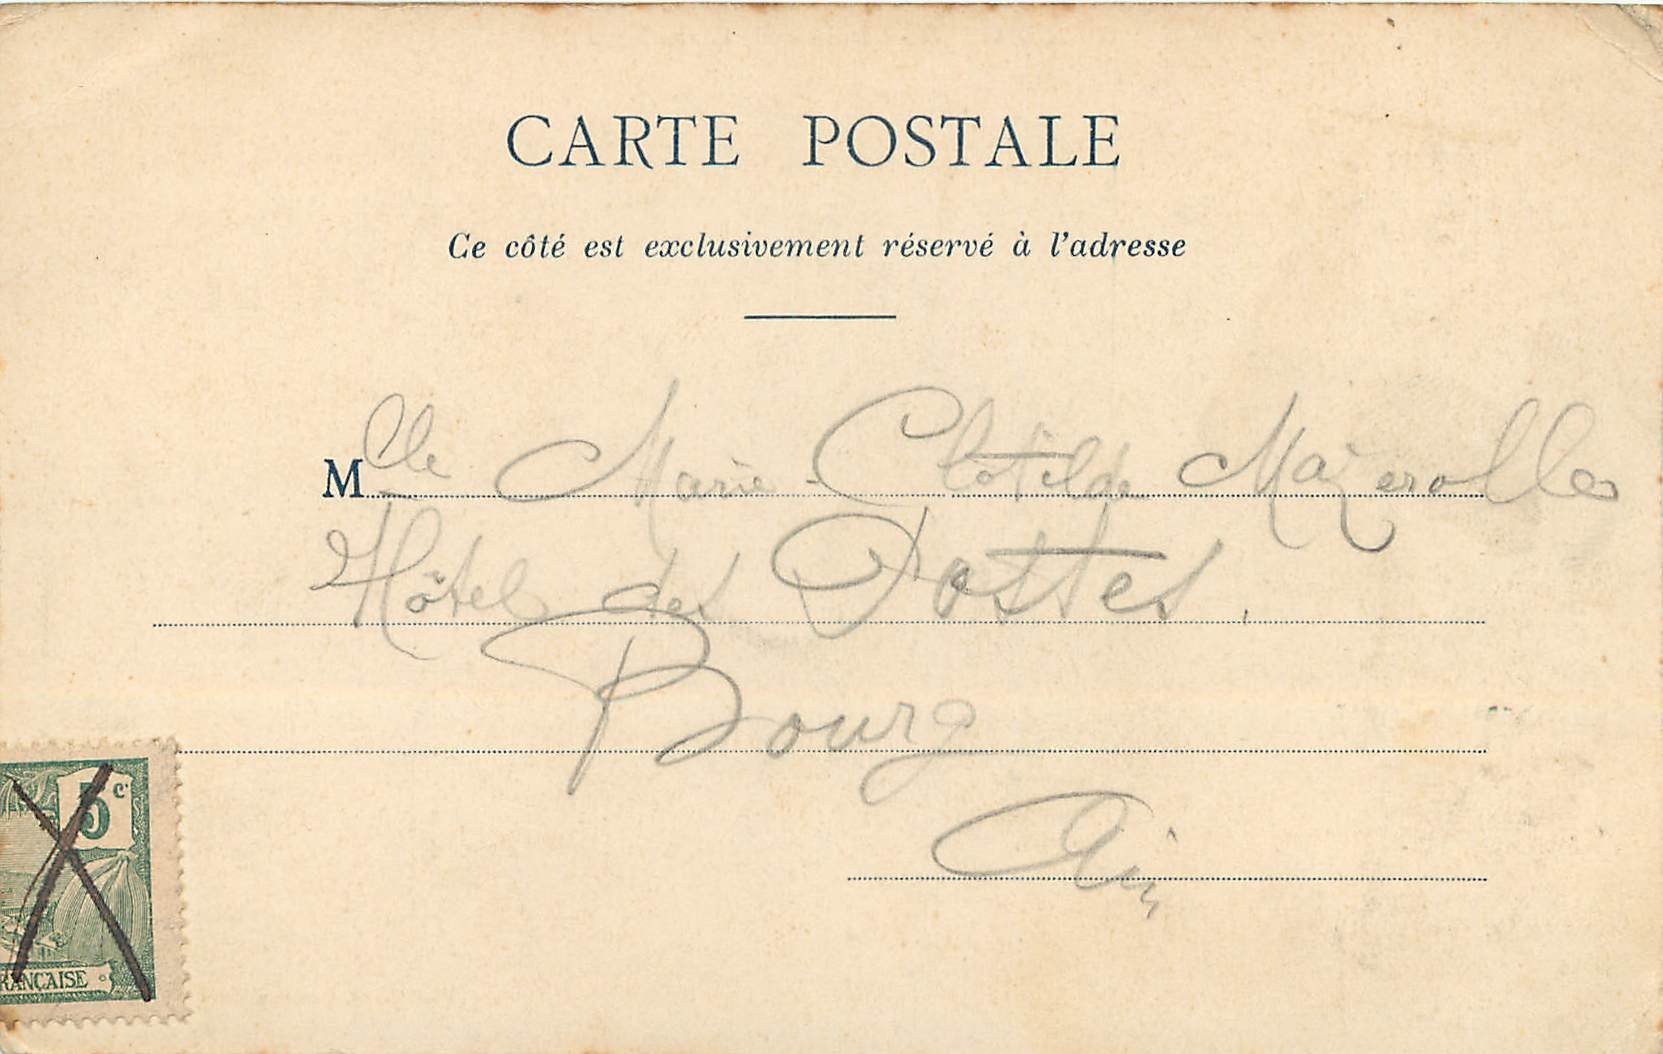 CARTE POSTALE
Ce côté est exclusivement réservé à l'adresse
Mlle Marie-Clotilde Mazerolles
Hôtel des Postes.
Bourg
Ain
5 c.
RANÇAISE